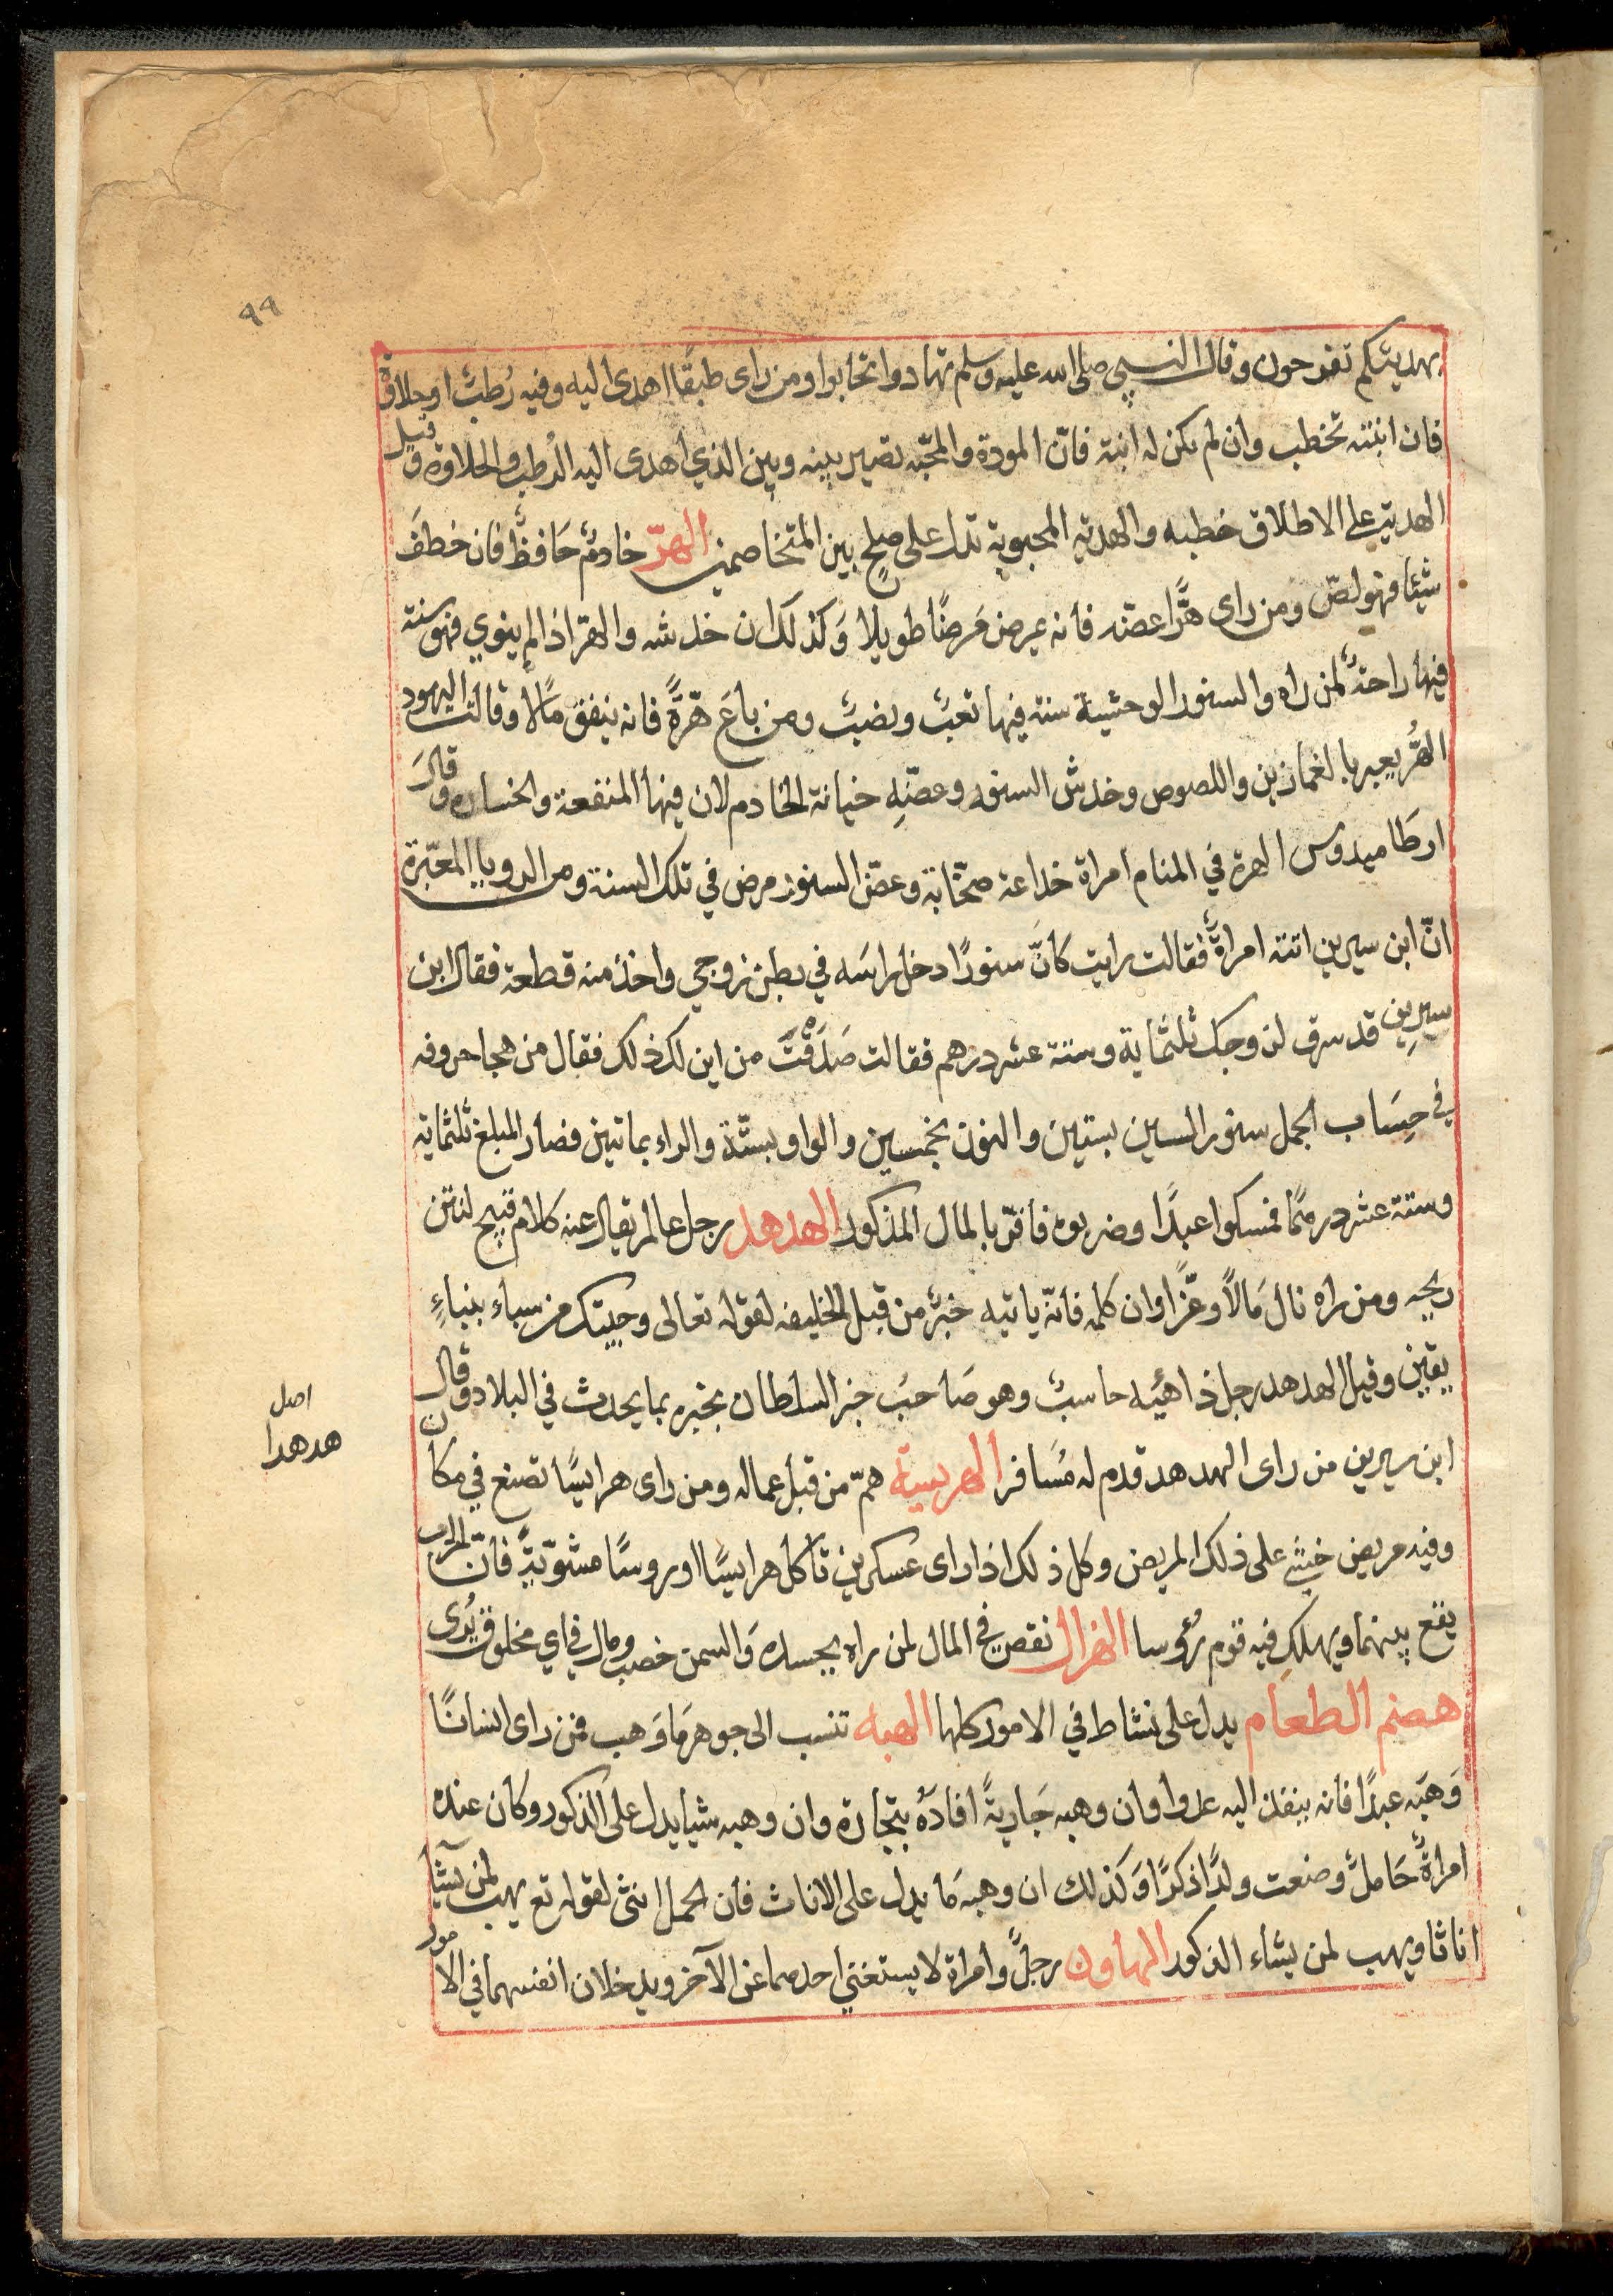 ٩٩
بهديتكم تفرحون وقال النبي صلى الله عليه وسلم تهادوا تحابوا ومن راى طبقًا اهدى اليه وفيه رُطبٌ او حلاوة
فان ابنته تخطب وان لم يكن له ابنة فانّ المودة والمحبّه تصير بينه وبين الذي اهدى اليه الرُطب والحلاوة وقيل
الهدية على الاطلاق خطبه والهدية المحبوبة تدل على صلحٍ بين المتخاصمين الهرّ خادمٌ حَافظٌ فان خطفَ
شيئا فهو لصّ ومن راى هرًّا عضّه فانه يمرض مَرضًا طويلا وَكذلك ان خدشه والهرّ اذا لم ينوي فهو سنة
فيها راحةٌ لمن راه والسنور الوحشية سنة فيها تعبٌ ونصبٌ ومن باعَ هرّةً فانه ينفق مالًا وقالت اليهود
الهرُّ يعبر بالغمازين واللصوص وخدش السنور وعضّهِ خيانة الخادم لان فيها المنفعة والخساره وقالَ
ارطَاميدوس الهرة في المنام امراة خداعة صخّابة وعضّ السنور مرض في تلك السنة ومن الرويا المعبّرة
انّ ابن سيرين اتته امراةٌ فقالت رايت كَانَّ سنورًا دخل راسَه في بطن زوجي واخذ منه قطعة فقال ابن
سيرِين قد سرق لزوجك ثلثماية وستة عشر درهم فقالت صَدَقْتَ من اين لك ذلك فقال من هجا حروفه
في حِسَاب الجمل سنور السين بستين والنون بخمسين والواو بستّة والراء بماتين فصار المبلغ ثلثماية
وستة عشر درهمًا فمسكوا عبدًا وضربوه فاقرّ بالمال المذكور الهدهد رجل عالم يقال عنه كلام قبيح لنتن
ريحه ومن راه نال مَالاً وعّزًا وان كلمه فانّه ياتيه خبرٌ من قِبل الخليفه لقوله تعالى وجيتك من سباء بنباءٍ
يقين وقيل الهدهد رجل ذاهيبه حاسبٌ وهو صَاحبَ خبر السلطان يخبره بما يحدث في البلاد وقال
ابن سيرين من راى الهدهد قدم له مُسَافر الهريسة همّ من قبل عماله ومن راى هرايسًا تصنع في مكان
وفيه مريض خيشى على ذلك المريض وكل ذلك اذا راى عسكرين تاكل هرايسًا او روسًا مشويّةً فانّ الحرب
يقع بينهما ويهلك فيه قوم رُؤسا الهزال نقص في المال لمن راه بجسده وَالسمن خصب ومال في اي مخلوق يُرى
هضم الطعام يدل على نشاط في الامور كلها الهبه تنسب الى جوهر مَا وَهب فمن راى انسانًا
وَهبَه عبدًا فانه ينفذ اليه عدوا وان وهبه جَاريةً افادَهُ بتجارة وان وهبه شيا يدل على الذكور وكان عنده
امراةٌ حَاملٌ وضعت ولدًا ذكرًا وَكذلك ان وهبه مَا يدل على الاناث فان الحمل انثى لقوله تع يهب لمن يشآ
اناثا ويهب لمن يشاء الذكور الهاون رجلٌ وامراة لا يستغني احدهما عن الآخر ويدخلان انفسهما في الامور
اصل
هدهدا